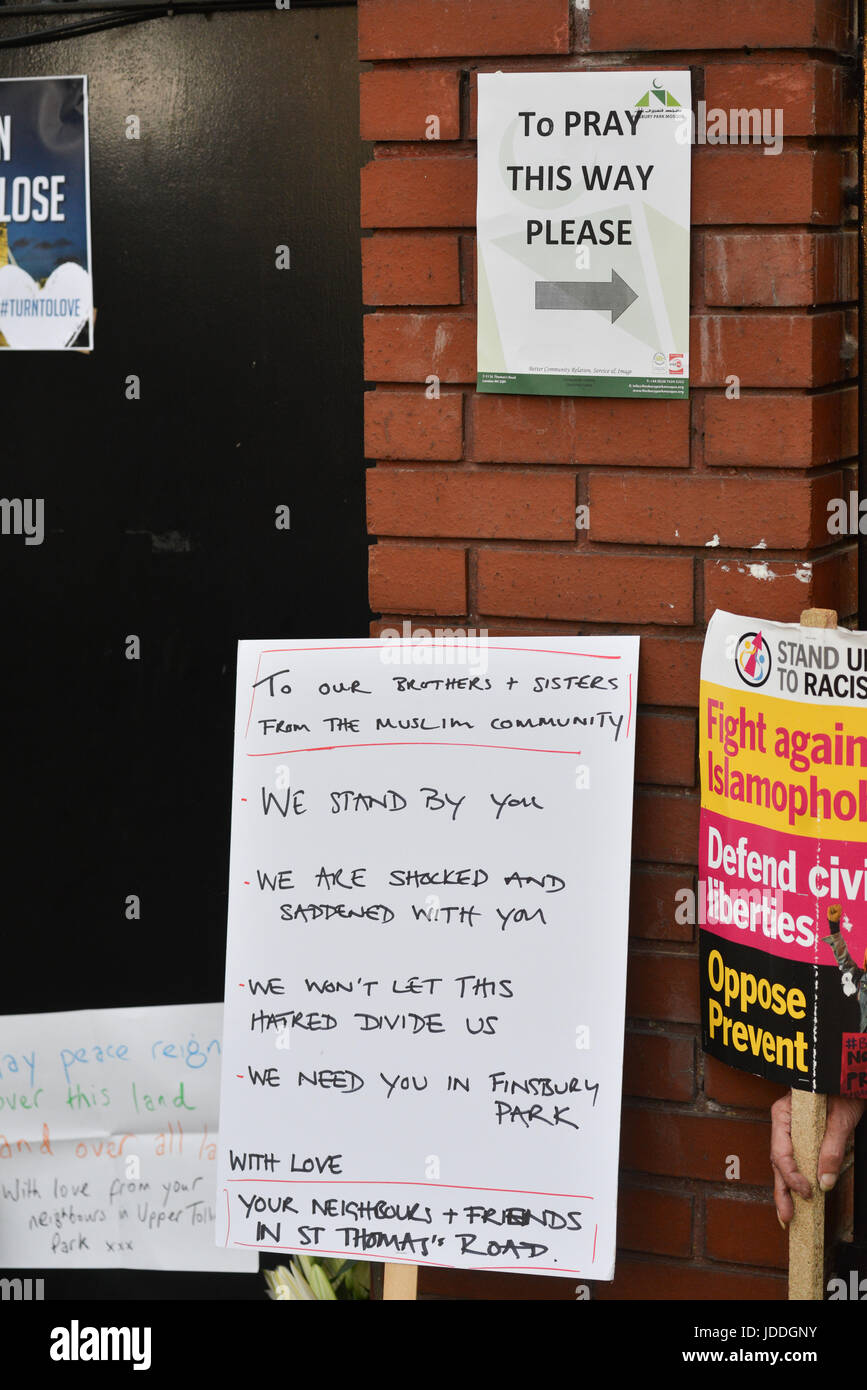 LOSE
#TURNTOLOVE
FINSBURY PARK MOSQUE
To PRAY
THIS WAY
PLEASE
Better Community Relation, Service & Image
To OUR BROTHERS + SISTERS
FROM THE MUSLIM COMMUNITY
- WE STAND BY YOU
- WE ARE SHOCKED AND
SADDENED WITH YOU
- WE WON'T LET THIS
HATRED DIVIDE US
- WE NEED YOU IN FINSBURY
PARK
WITH LOVE
YOUR NEIGHBOURS + FRIENDS
IN ST THOMAS'S ROAD.
STAND U
TO RACIS
Fight again
Islamophob
Defend civi
liberties
Oppose
Prevent
ay peace reign
over this land
and over all la
With love from your
neighbours in Upper Toll
Park xxx
alamy
Image ID: JDDGNY
www.alamy.com